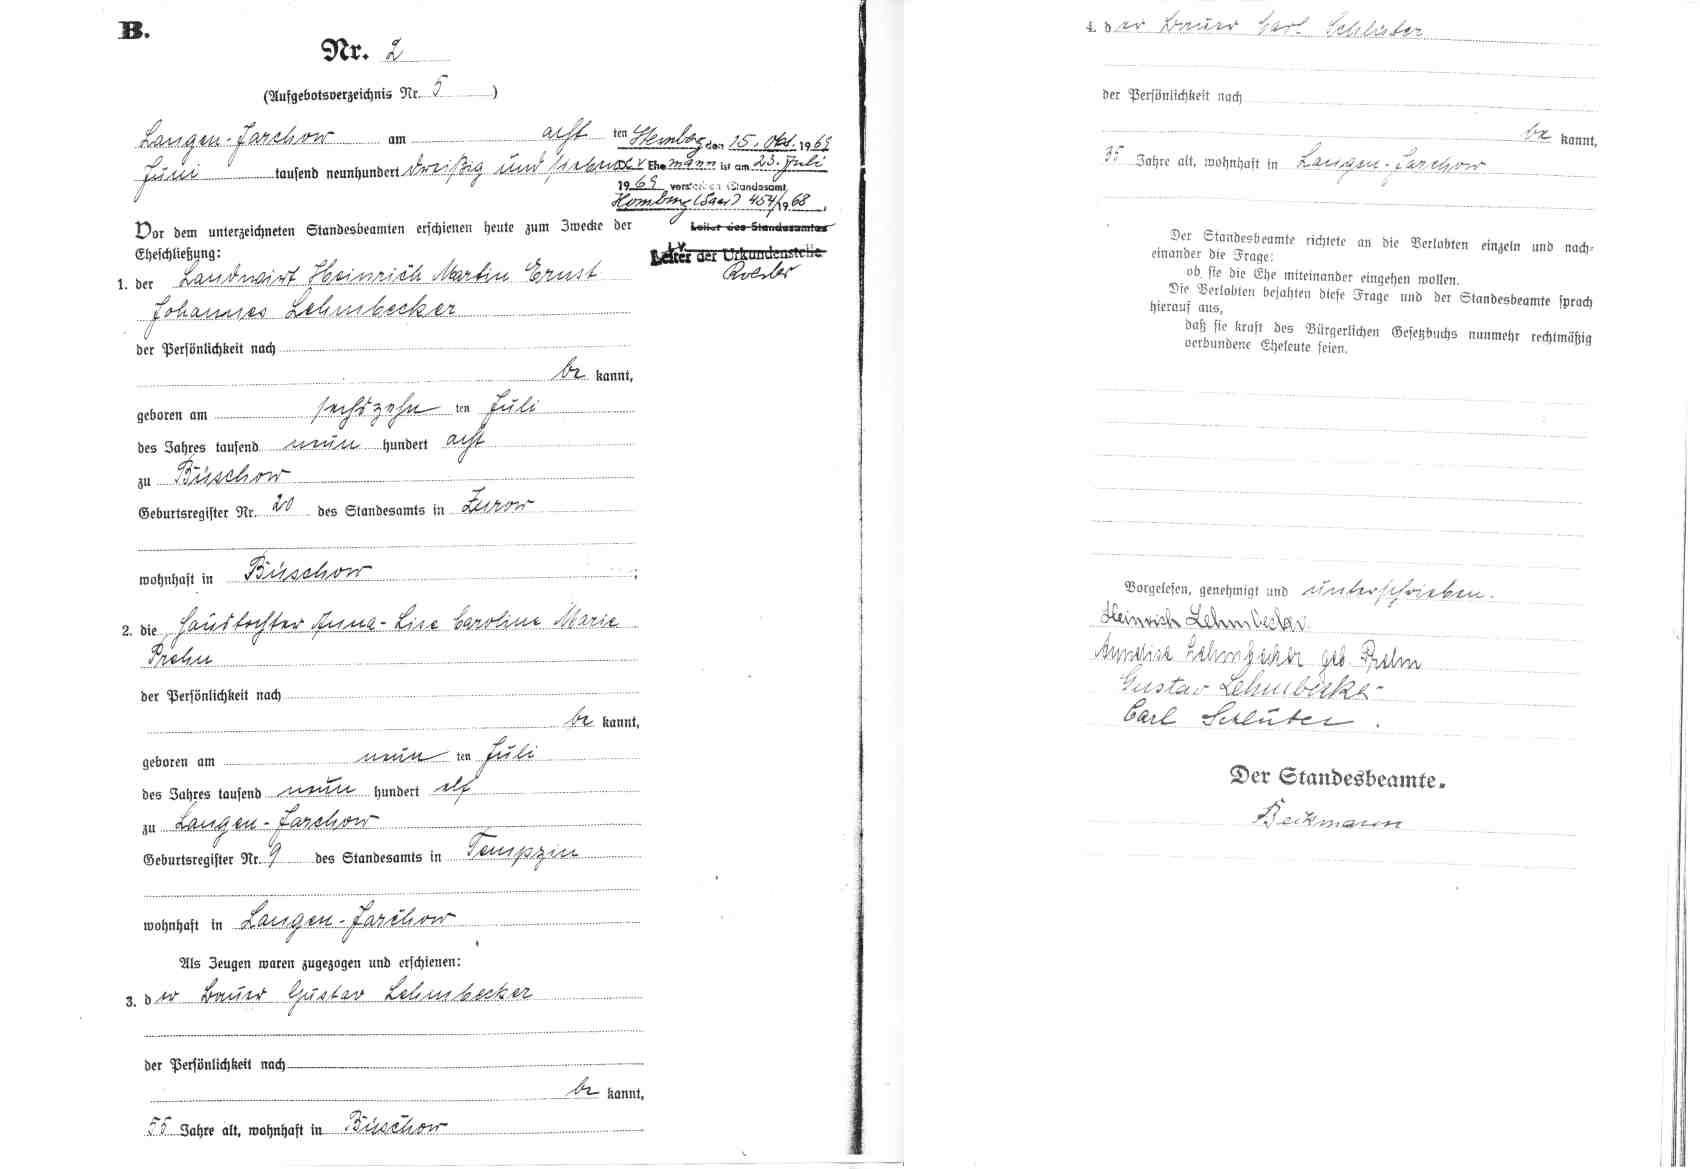 B.
Nr. 2
(Aufgebotsverzeichnis Nr. 5 )
Langen-Jarchow am acht ten
Juni tausend neunhundert dreißig und sieben
den 15. Okt. 1969
Ehemann ist am 23. Juli
1969 verstorben (Standesamt
Homburg (Saar) 454/1968
Leiter des Standesamtes
I.V.
Leiter der Urkundenstelle
Vor dem unterzeichneten Standesbeamten erschienen heute zum Zwecke der
Eheschließung:
1. der Landwirt Heinrich Martin Ernst
Johannes Lehmbecker
der Persönlichkeit nach
be kannt,
geboren am sechszehn ten Juli
des Jahres tausend neun hundert acht
zu Büschow
Geburtsregister Nr. 20 des Standesamts in Zurow
wohnhaft in Büschow ;
2. die Haustochter Anna-Lise Caroline Marie
Prehn
der Persönlichkeit nach
be kannt,
geboren am neun ten Juli
des Jahres tausend neun hundert elf
zu Langen-Jarchow
Geburtsregister Nr. 9 des Standesamts in Tempzin
wohnhaft in Langen-Jarchow
Als Zeugen waren zugezogen und erschienen:
3. der Bauer Gustav Lehmbecker
der Persönlichkeit nach
be kannt,
55 Jahre alt, wohnhaft in Büschow
4. der Bauer Carl Schlüter
der Persönlichkeit nach
be kannt,
35 Jahre alt, wohnhaft in Langen-Jarchow
Der Standesbeamte richtete an die Verlobten einzeln und nach-
einander die Frage:
ob sie die Ehe miteinander eingehen wollen.
Die Verlobten bejahten diese Frage und der Standesbeamte sprach
hierauf aus,
daß sie kraft des Bürgerlichen Gesetzbuchs nunmehr rechtmäßig
verbundene Eheleute seien.
Vorgelesen, genehmigt und unterschrieben.
Heinrich Lehmbecker
Annelise Lehmbecker geb. Prehn
Gustav Lehmbecker
Carl Schlüter.
Der Standesbeamte.
Beckmann